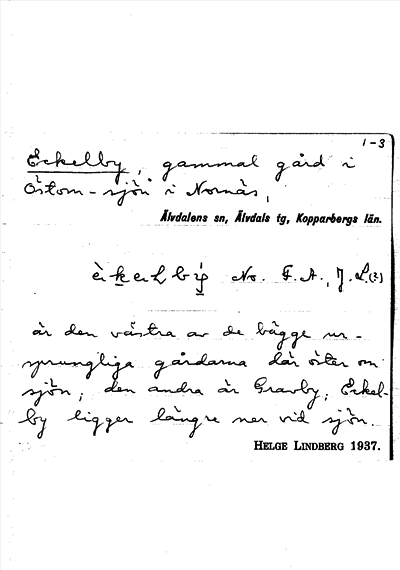 1-3
Eckelby, gammal gård i
Östom-sjön i Nornäs,
Älvdalens sn, Älvdals tg, Kopparbergs län.
No. F. A., J. L.
är den västra av de bägge ur-
sprungliga gårdarna där öster om
sjön; den andra är Gravby; Eckel-
by ligger längre ner vid sjön.
HELGE LINDBERG 1937.